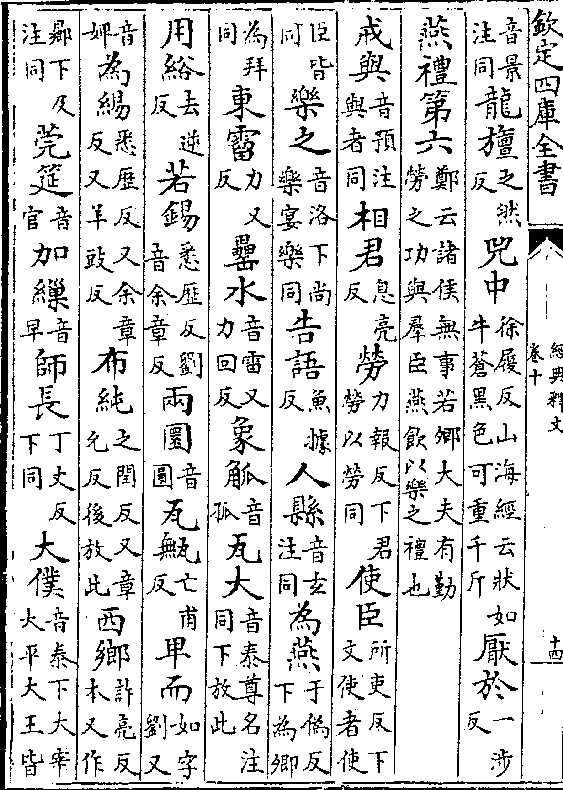 欽定四庫全書
經典釋文
卷十
十四
音景注同龍旜之然反兕中徐履反山海經云狀如牛蒼黑色可重千斤厭於一涉反
燕禮第六鄭云諸侯無事若卿大夫有勤勞之功與羣臣燕飲以樂之禮也
戒與音預注與者同相君息亮反勞力報反下君勞以勞同使臣所吏反下文使者使
臣皆同樂之音洛下尚樂宴樂同告語魚據反人縣音玄注同為燕于偽反下為卿
為拜同東霤力又反罍水音雷又力回反象觚音孤瓦大音泰尊名注同下放此
用綌去逆反若錫悉歷反劉音余章反兩圜音圓瓦甒亡甫反卑而如字劉又
音婢為緆悉歷反又余章反又羊豉反布純之閏反又章允反後放此西鄉許亮反本又作
下及注同莞筵音官加繅音早師長丁丈反下同大僕音泰下大宰大平大王皆